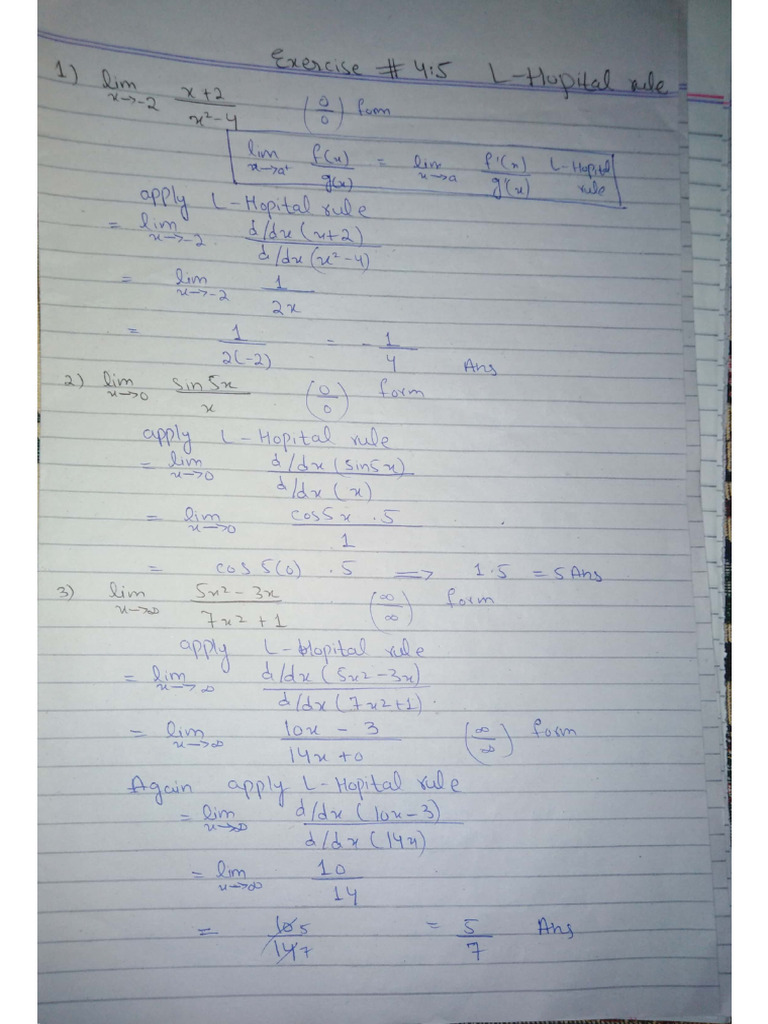 Exercise # 4.5 L-Hopital rule
1) lim x→-2 x+2 / x²-4 (0/0) form
lim x→a⁺ f(x)/g(x) = lim x→a f'(x)/g'(x) L-Hopital rule
apply L-Hopital rule
= lim x→-2 d/dx(x+2) / d/dx(x²-4)
= lim x→-2 1 / 2x
= 1 / 2(-2) = -1/4 Ans
2) lim x→0 sin5x / x (0/0) form
apply L-Hopital rule
= lim x→0 d/dx(sin5x) / d/dx(x)
= lim x→0 cos5x .5 / 1
= cos5(0) .5 => 1.5 = 5 Ans
3) lim x→∞ 5x²-3x / 7x²+1 (∞/∞) form
apply L-Hopital rule
= lim x→∞ d/dx(5x²-3x) / d/dx(7x²+1).
= lim x→∞ 10x - 3 / 14x+0 (∞/∞) form
Again apply L-Hopital rule
= lim x→∞ d/dx(10x-3) / d/dx(14x)
= lim x→∞ 10 / 14
= 10 5 / 14 7 = 5/7 Ans